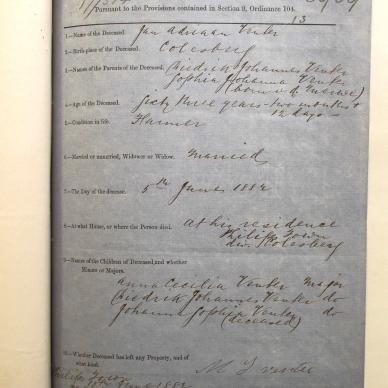 Pursuant to the Provisions contained in Section 9, Ordinance 104.
13
1.—Name of the Deceased. Jan Adriaan Venter
2.—Birth place of the Deceased. Colesberg
3.—Names of the Parents of the Deceased. Diedrik Johannes Venter
Sophia Johanna Venter
(born v. d. Merwe)
4.—Age of the Deceased. Sixty three years - two months &
12 days -
5.—Condition in life. Farmer
6.—Married or unmarried, Widower or Widow. Married
7.—The Day of the decease. 5th June 1882
8.—At what House, or where the Person died. At his residence
Philips Town
div. Colesberg
9.—Names of the Children of Deceased, and whether
Minors or Majors.
Anna Cecilia Venter major
Diedrik Johannes Venter do
Johanna Sophia Venter do
(deceased)
10.—Whether Deceased has left any Property, and of
what kind.
Philips Town
June 1882